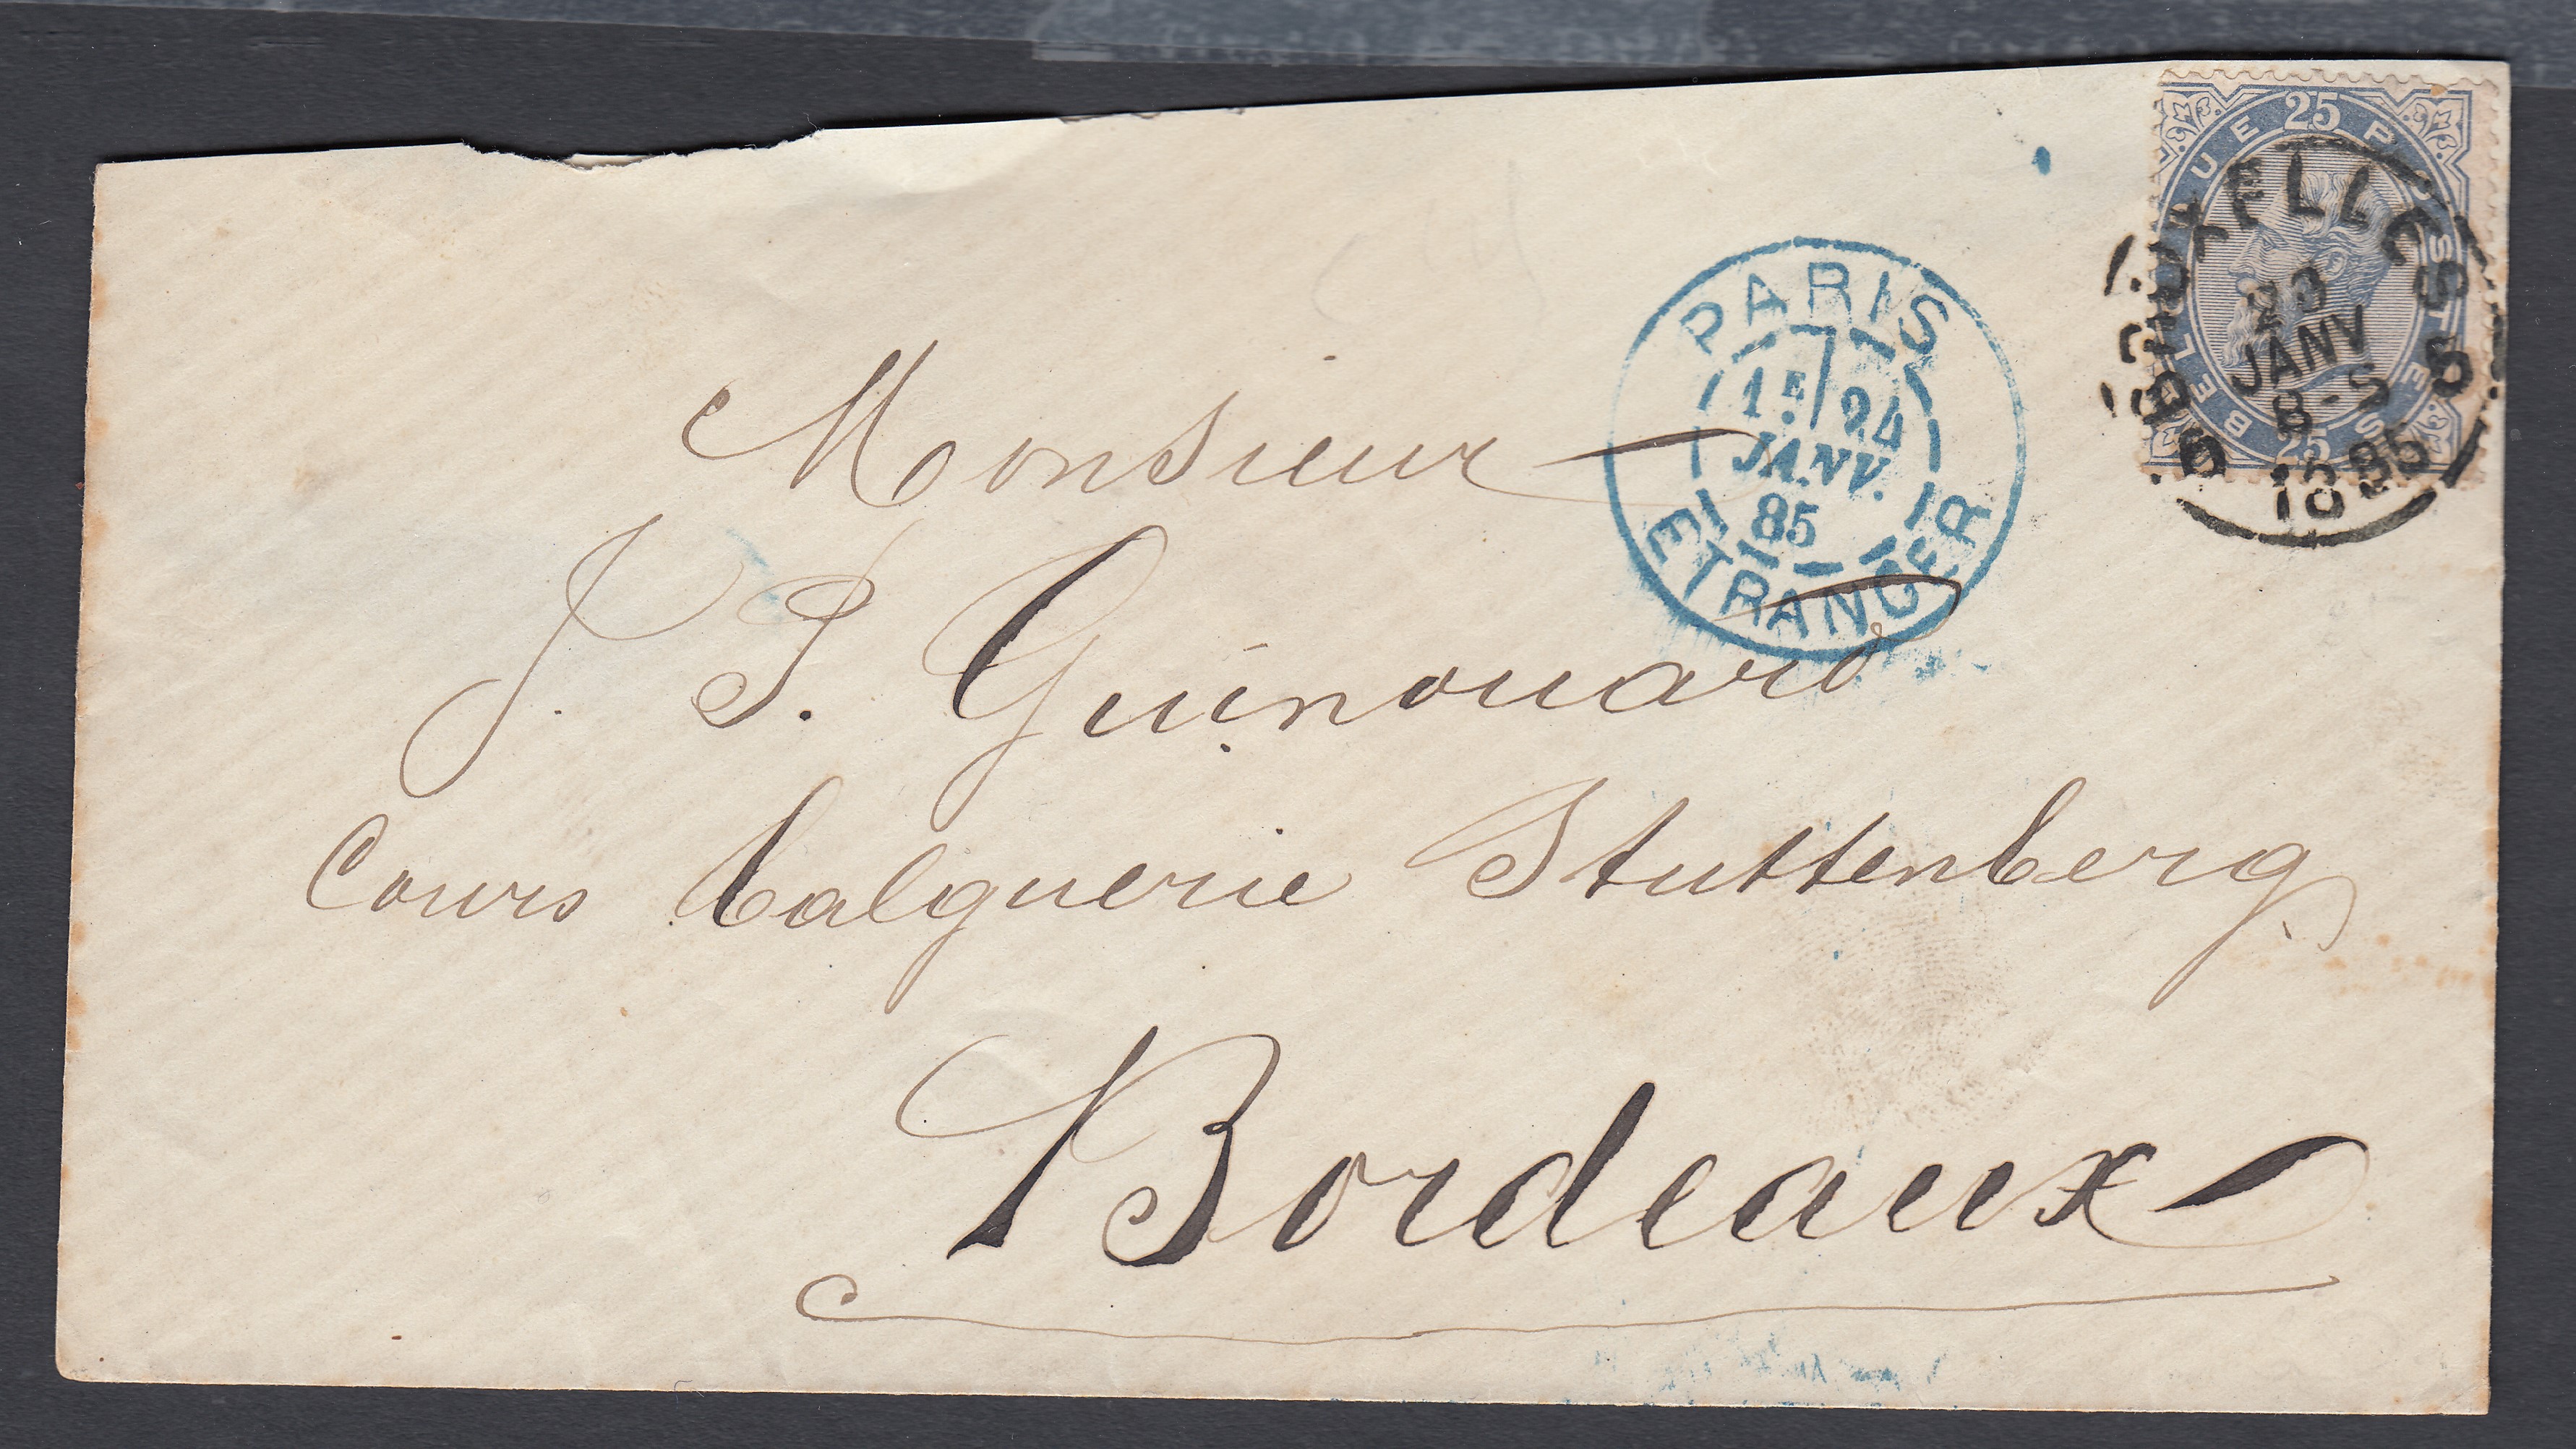 25
BELGIQUE POSTES
25
BRUXELLES
23
JANV
8-S
1885
5 5
PARIS
1E 24
JANV.
85
ETRANGER
Monsieur
J. P. Guinouard
Cours Balguerie Stuttenberg
Bordeaux